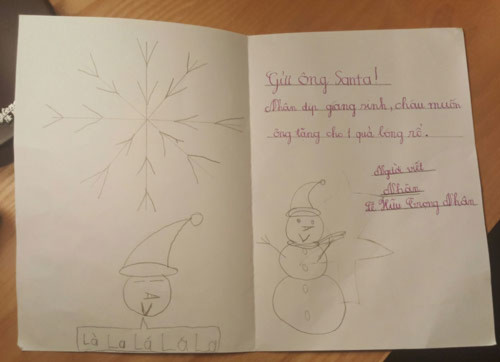 Là La Lá L L a
Gửi ông Santa!
Nhân dịp giáng sinh, cháu muốn
ông tặng cho 1 quả bóng rổ.
Người viết
Nhân
Hữu Nhân